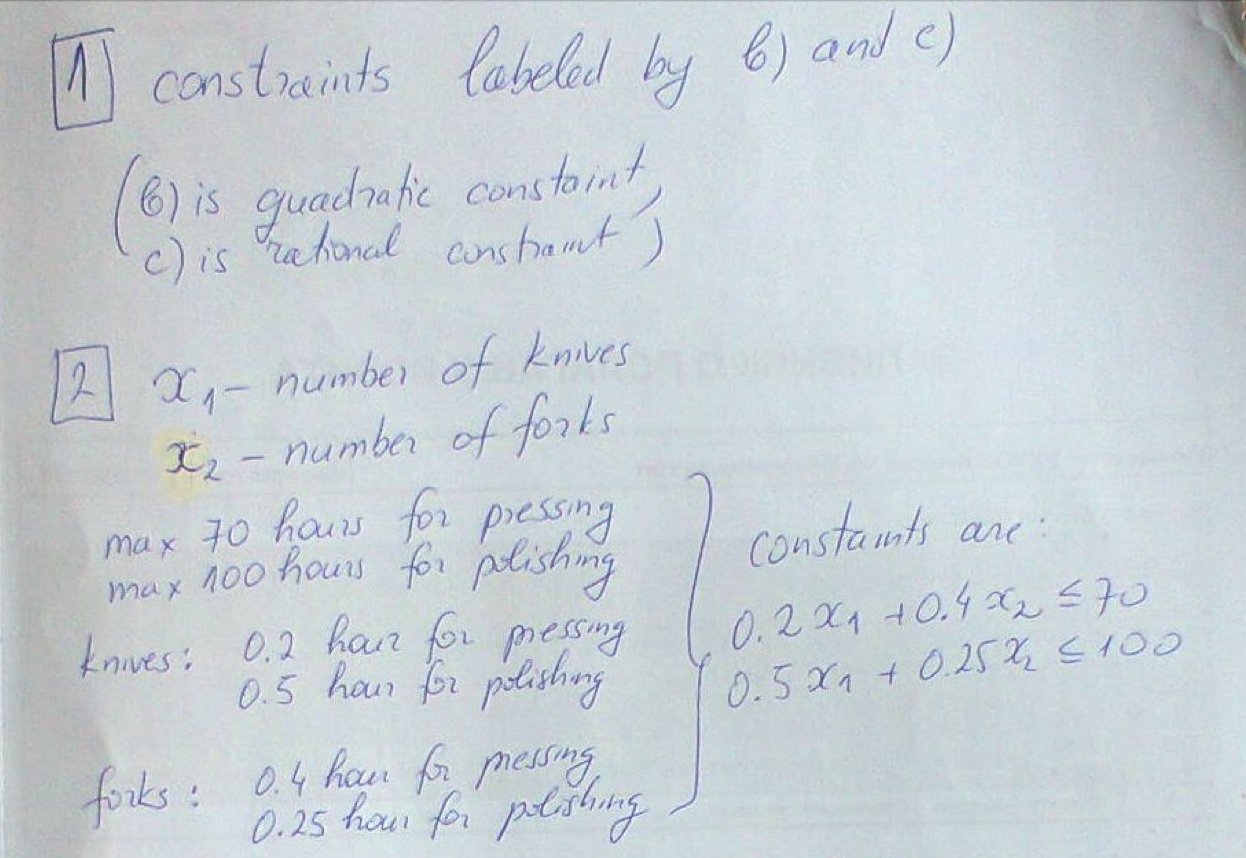 1 constraints labeled by b) and c)
(b) is quadratic constaint,
c) is rational constraint)
2 x₁ – number of knives
x₂ – number of forks
max 70 hours for pressing
max 100 hours for polishing
knives: 0.2 hour for pressing
0.5 hour for polishing
forks: 0.4 hour for pressing
0.25 hour for polishing
constaints are:
0.2x₁ + 0.4x₂ ≤ 70
0.5x₁ + 0.25x₂ ≤ 100